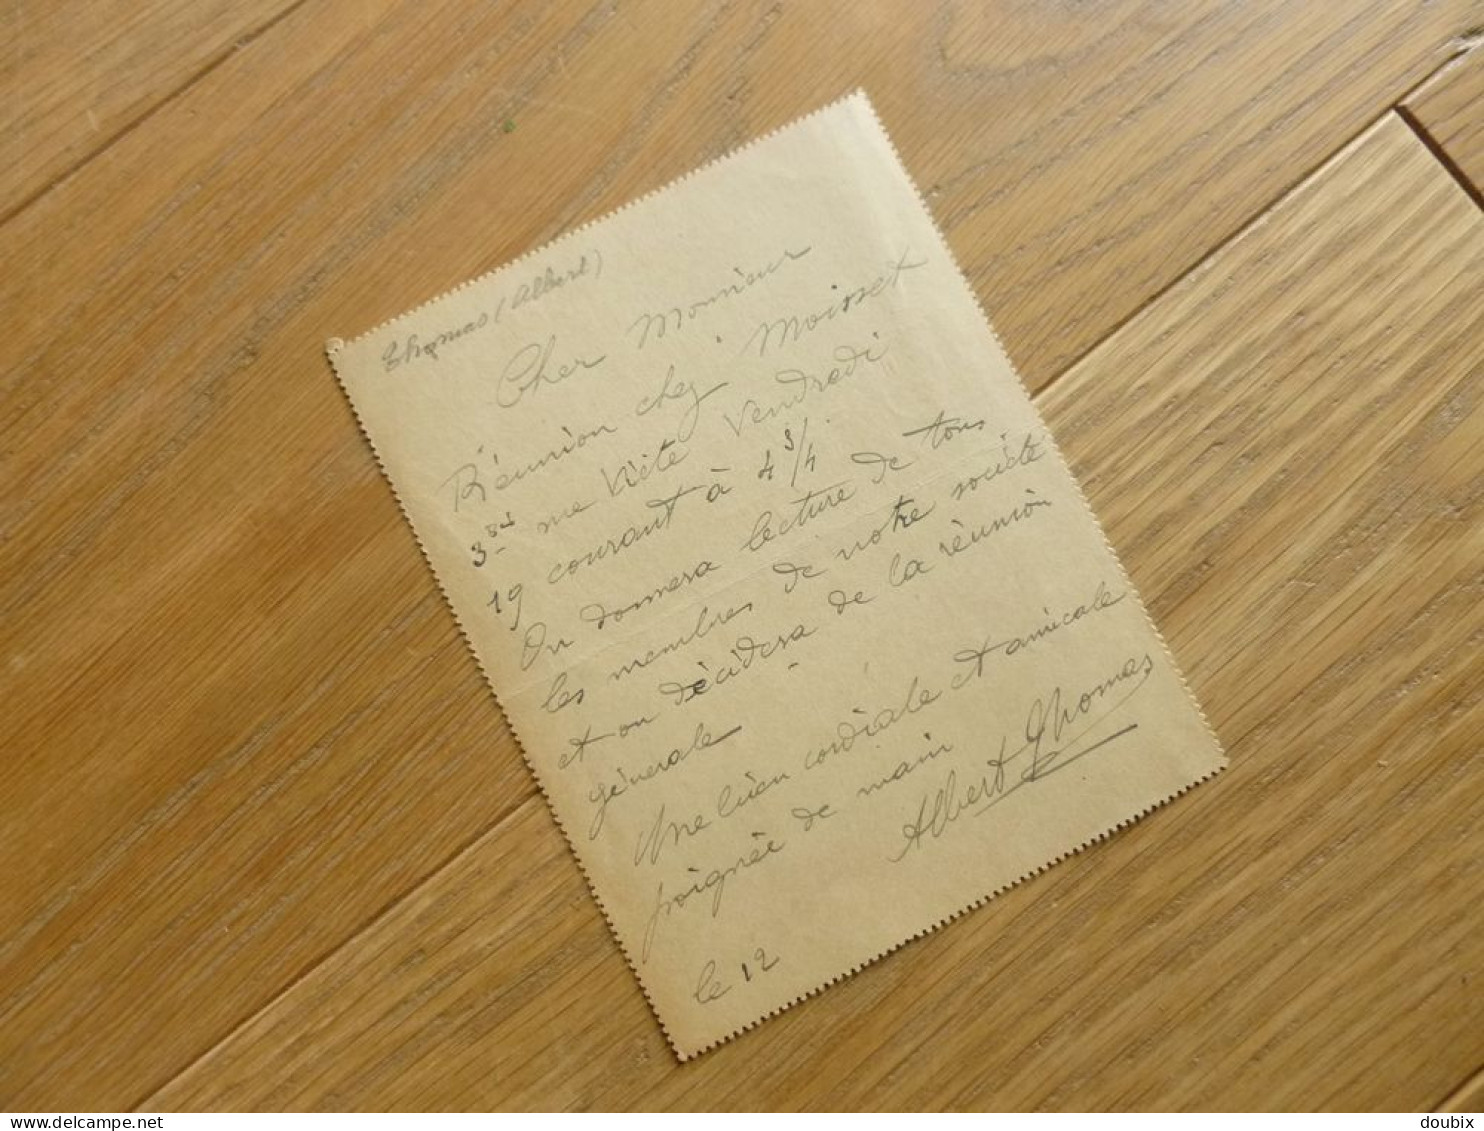 Thomas (Albert)
Cher Monsieur
Réunion chez Moisset
3 me Viète Vendredi
19 courant à 4 3/4
On donnera lecture de tous
les membres de notre société
et on décidera de la réunion
générale
Une bien cordiale et amicale
poignée de main
Albert Thomas
le 12
www.delcampe.net
doubix